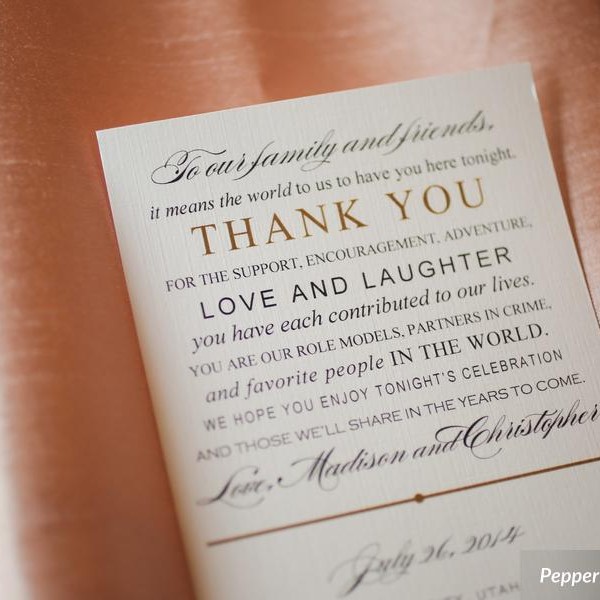 To our family and friends,
it means the world to us to have you here tonight.
THANK YOU
FOR THE SUPPORT, ENCOURAGEMENT, ADVENTURE,
LOVE AND LAUGHTER
you have each contributed to our lives.
YOU ARE OUR ROLE MODELS, PARTNERS IN CRIME,
and favorite people IN THE WORLD.
WE HOPE YOU ENJOY TONIGHT'S CELEBRATION
AND THOSE WE'LL SHARE IN THE YEARS TO COME.
Love, Madison and Christopher
July 26, 2014
UTAH
Pepper